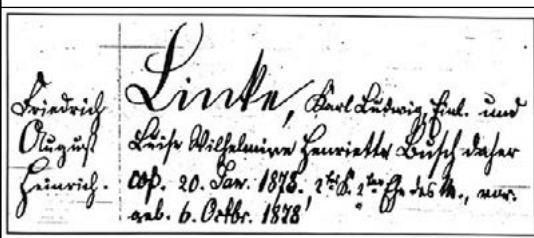 Friedrich
August
Heinrich.
Linke, Karl Ludwig, Einl. und
Luise Wilhelmine Henriette Busch daher
cop. 20. Jan. 1878, 2tes K. 2ter Ehe des M.,
geb. 6. Octbr. 1878